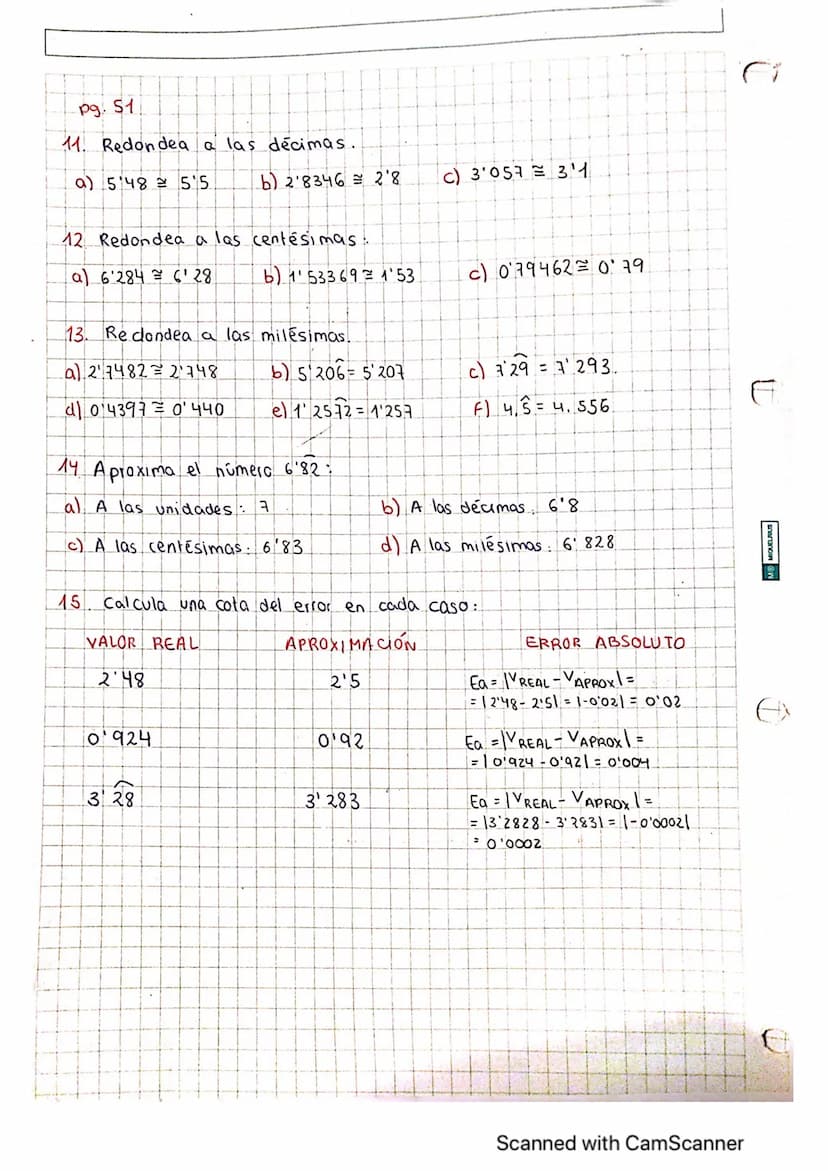 pg. 51
11. Redondea a las décimas.
a) 5'48 ≅ 5'5 b) 2'8346 ≅ 2'8 c) 3'057 ≅ 3'1
12 Redondea a las centésimas:
a) 6'284 ≅ 6'28 b) 1'53369 ≅ 1'53 c) 0'79462 ≅ 0'79
13. Redondea a las milésimas.
a) 2'7482 ≅ 2'748 b) 5'206̂ = 5'207 c) 7'2͡9 = 7'293.
d) 0'4397 ≅ 0'440 e) 1'25͡72 = 1'257 f) 4,5̂ = 4.556
14 Aproxima el número 6'8͡2:
a) A las unidades: 7 b) A las décimas. 6'8
c) A las centésimas: 6'83 d) A las milésimas: 6'828
15. Calcula una cota del error en cada caso:
VALOR REAL APROXIMACIÓN ERROR ABSOLUTO
2'48 2'5 Ea = |VREAL - VAPROX| =
= |2'48 - 2'5| = |-0'02| = 0'02
0'924 0'92 Ea = |VREAL - VAPROX| =
= |0'924 - 0'92| = 0'004
3'2͡8 3'283 Ea = |VREAL - VAPROX| =
= |3'2828 - 3'283| = |-0'0002|
= 0'0002
MIQUELRIUS
Scanned with CamScanner